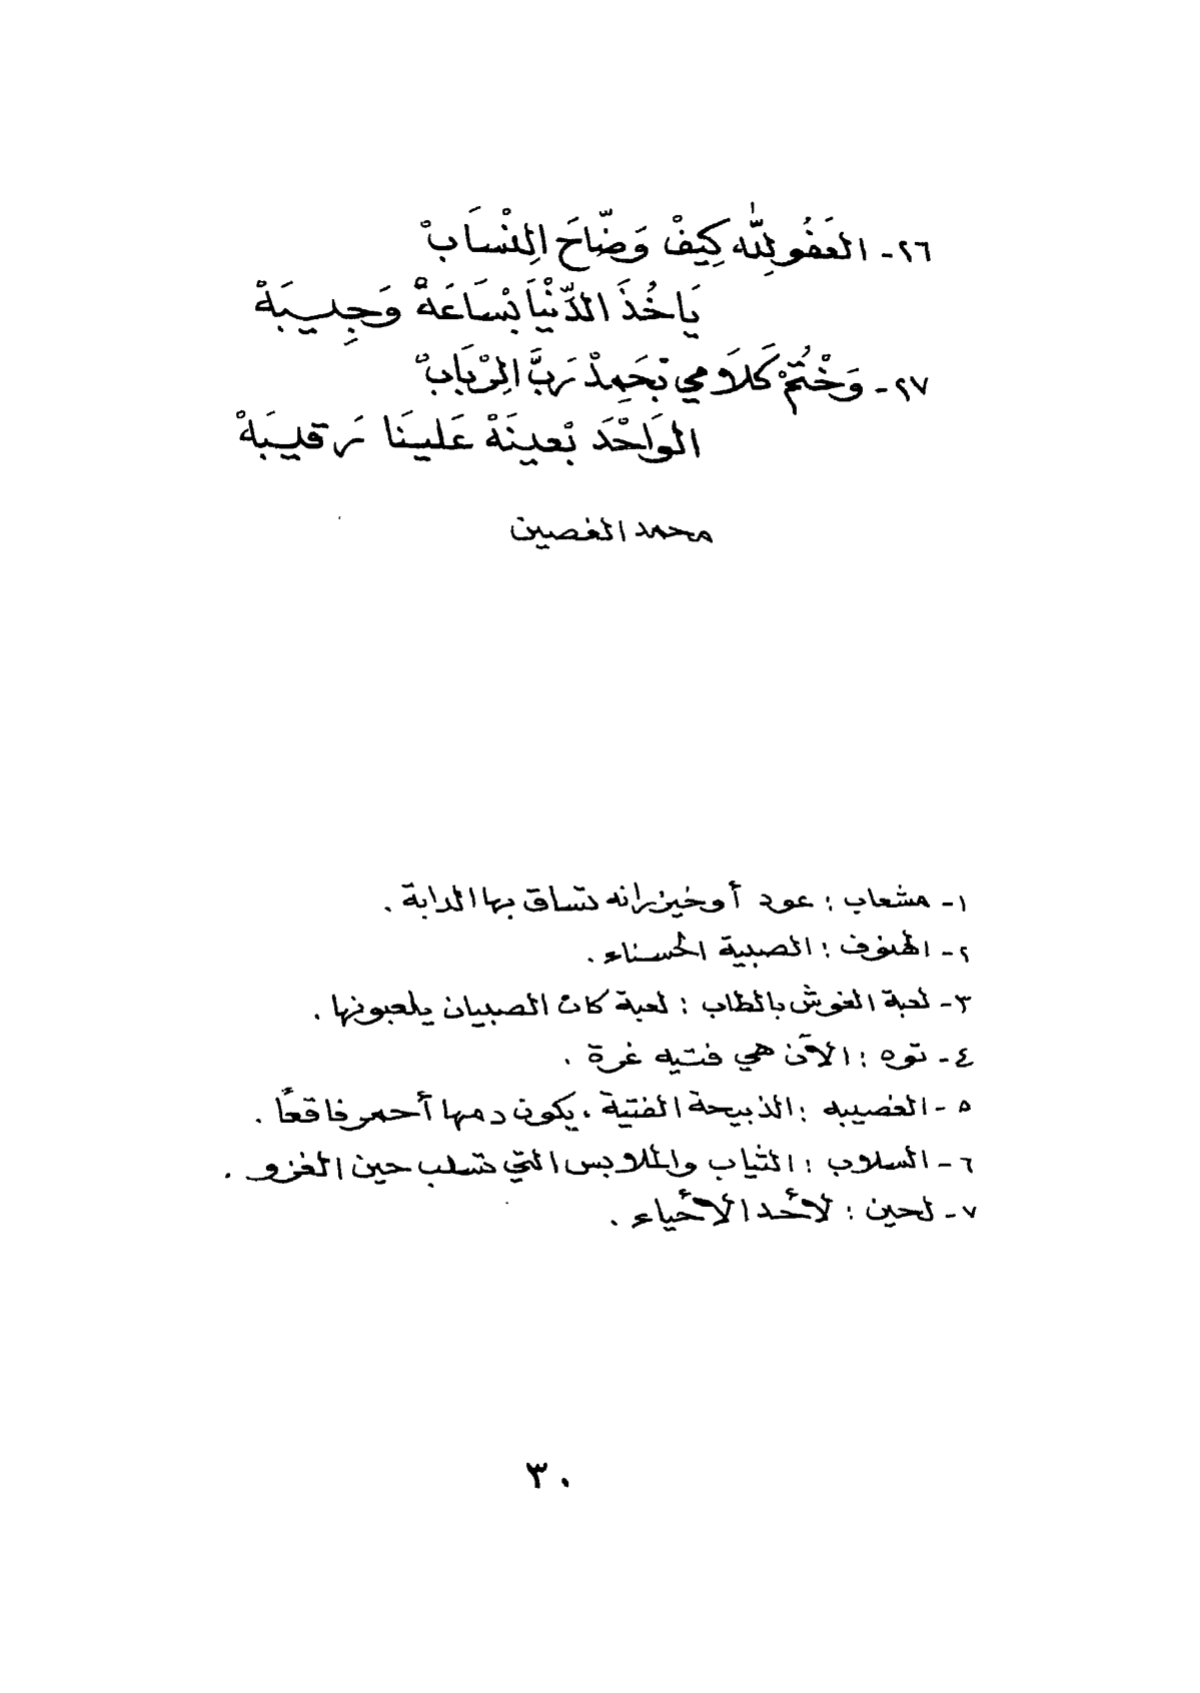 ٢٦- العَفُو لِلّٰه كِيفْ وَضّاحَ اِلنْسَابْ
يَاخُذَ الدِّنْيَا بْسَاعَهْ وَجِيبَهْ
٢٧- وَخْتُمْ كَلَامي بْحَمِدْ رَبَّ اِلرْبَابْ
الوَاحْدَ بْعينَهْ عَلينَا رَقيبَهْ
محمد الغصين
١- مشعاب : عود أو خيزرانه تساق بها الدابة .
٢- الهنوف : الصبية الحسناء .
٣- لعبة الغوش بالطاب : لعبة كان الصبيان يلعبونها .
٤- توه : الآن هي فتيه غرة .
٥- الغصيبه : الذبيحة الفتية ، يكون دمها أحمر فاقعاً .
٦- السلاب : الثياب والملابس التي تسلب حين الغزو .
٧- لحين : لأحد الأحياء .
٣٠